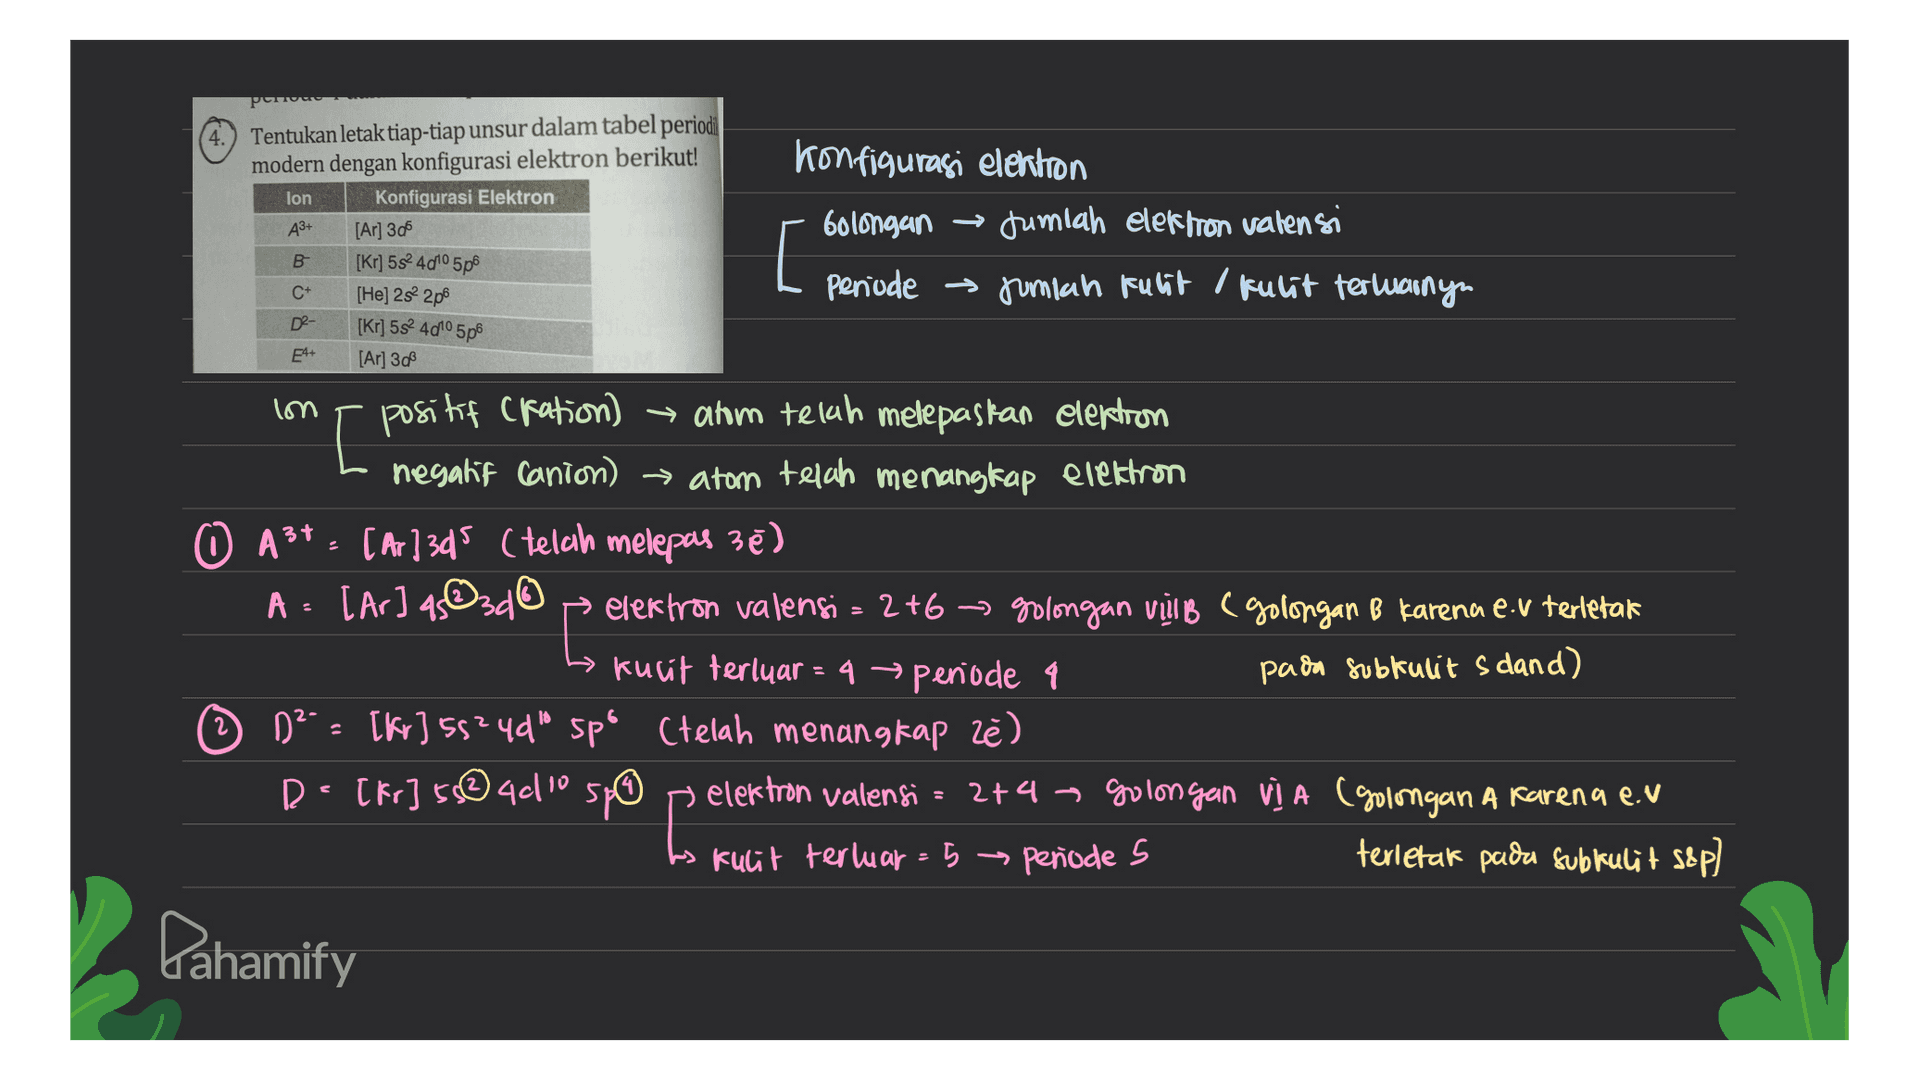 4. Tentukan letak tiap-tiap unsur dalam tabel periodi
modern dengan konfigurasi elektron berikut!
Ion Konfigurasi Elektron
A³⁺ [Ar] 3d⁵
B⁻ [Kr] 5s² 4d¹⁰ 5p⁶
C⁺ [He] 2s² 2p⁶
D²⁻ [Kr] 5s² 4d¹⁰ 5p⁶
E⁴⁺ [Ar] 3d³
Konfigurasi elektron
Golongan → Jumlah elektron valensi
Periode → Jumlah kulit / kulit terluarnya
Ion positif (kation) → atom telah melepaskan elektron
negatif (anion) → atom telah menangkap elektron
① A³⁺ = [Ar] 3d⁵ (telah melepas 3ē)
A = [Ar] 4s² 3d⁶ → elektron valensi = 2+6 → golongan VIIIB (golongan B karena e.v terletak
pada subkulit s dan d)
↳ kulit terluar = 4 → periode 4
② D²⁻ = [Kr] 5s² 4d¹⁰ 5p⁶ (telah menangkap 2ē)
D = [Kr] 5s² 4d¹⁰ 5p⁴ → elektron valensi = 2+4 → golongan VI A (golongan A karena e.v
terletak pada subkulit s&p)
↳ kulit terluar = 5 → periode 5
Pahamify